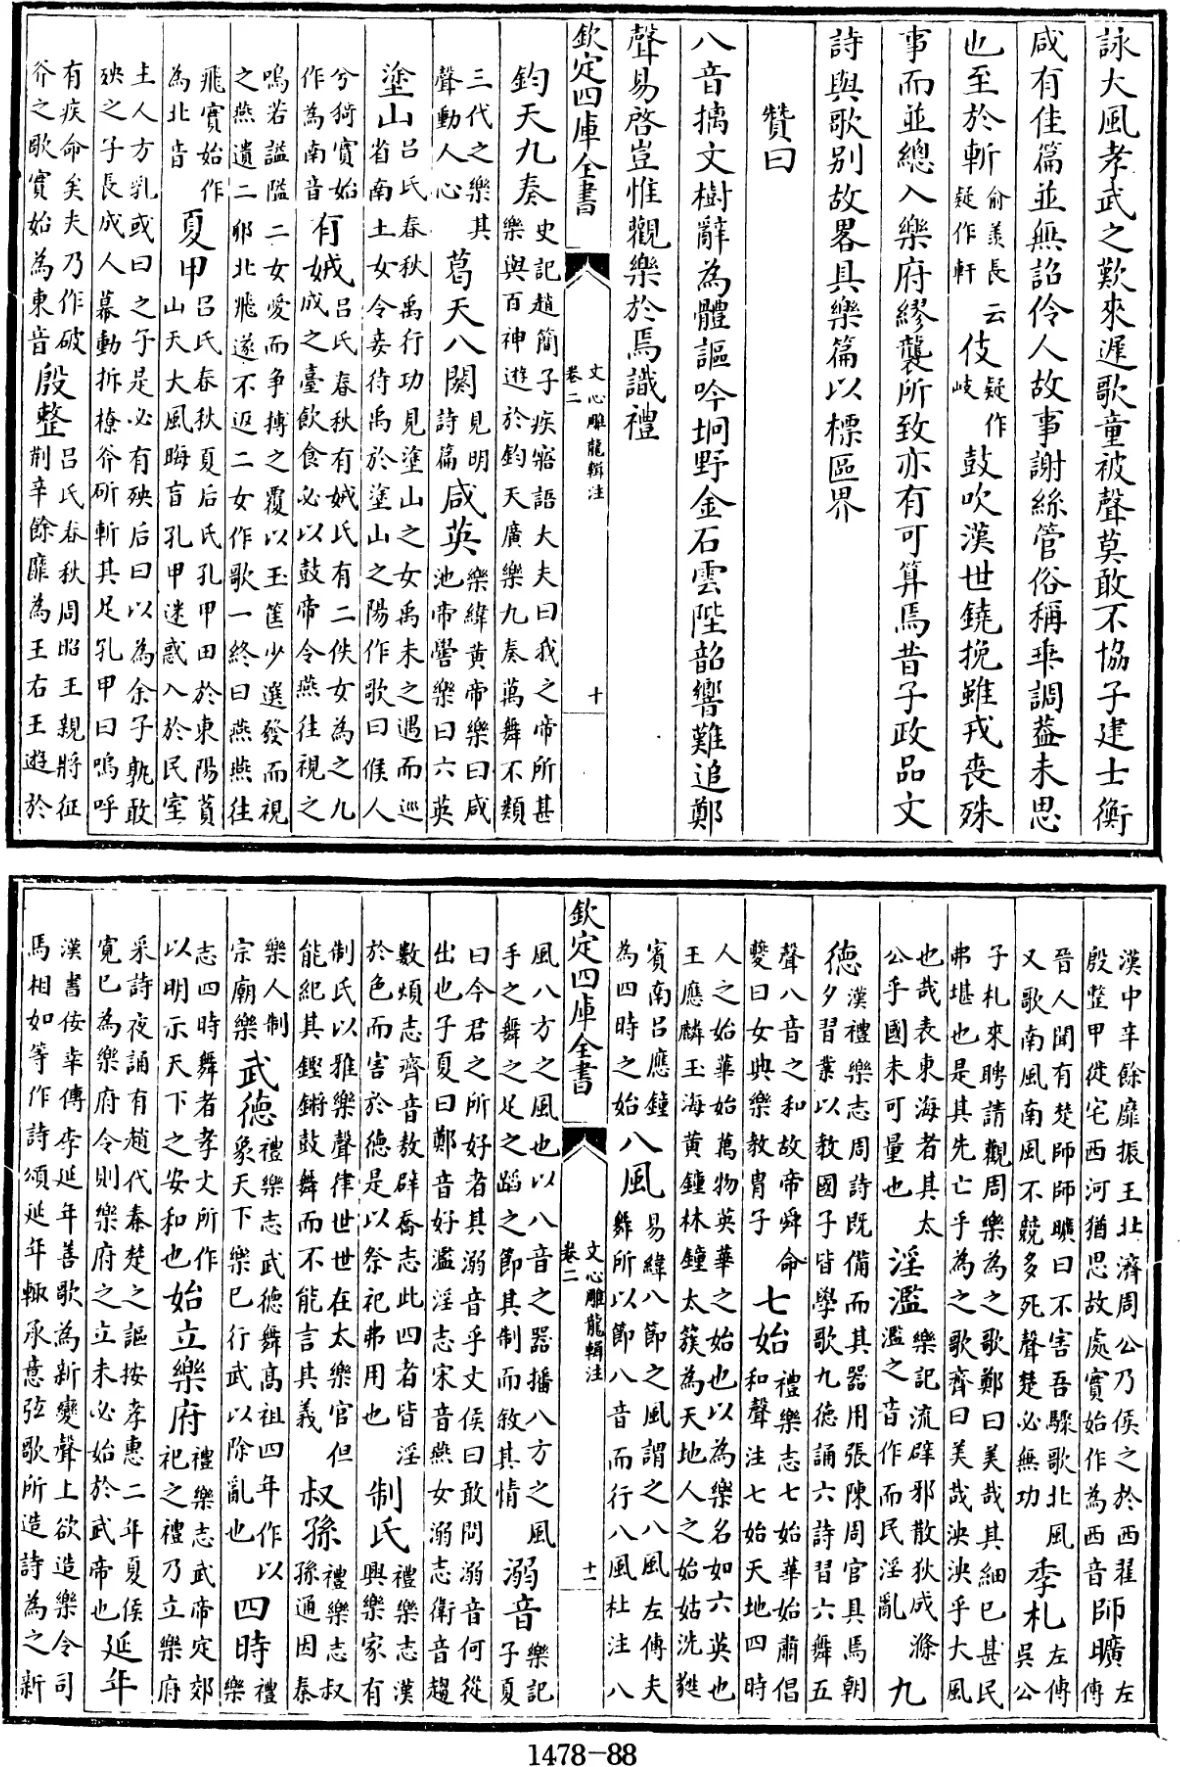 詠大風孝武之歎來遲歌童被聲莫敢不協子建士衡
咸有佳篇並無詔伶人故事謝絲管俗稱乖調葢未思
也至於斬俞羨長云疑作軒伎疑作岐鼓吹漢世鐃挽雖戎喪殊
事而並總入樂府繆襲所致亦有可算焉昔子政品文
詩與歌别故畧具樂篇以標區界
贊曰
八音摛文樹辭為體謳吟坰野金石雲陛韶響難追鄭
聲易啓豈惟觀樂於焉識禮
欽定四庫全書 文心雕龍輯注 卷二 十
鈞天九奏史記趙簡子疾寤語大夫曰我之帝所甚樂與百神遊於鈞天廣樂九奏萬舞不類
三代之樂其聲動人心葛天八闋見明詩篇咸英樂緯黃帝樂曰咸池帝嚳樂曰六英
塗山呂氏春秋禹行功見塗山之女禹未之遇而巡省南土女令妾待禹於塗山之陽作歌曰候人
兮猗實始作為南音有娀呂氏春秋有娀氏有二佚女為之九成之臺飲食必以鼓帝令燕往視之
鳴若謚隘二女愛而爭摶之覆以玉筐少選發而視之燕遺二卵北飛遂不返二女作歌一終曰燕燕往
飛實始作為北音夏甲呂氏春秋夏后氏孔甲田於東陽萯山天大風晦盲孔甲迷惑入於民室
主人方乳或曰之子是必有殃后曰以為余子孰敢殃之子長成人幕動拆橑斧斫斬其足孔甲曰嗚呼
有疾命矣夫乃作破斧之歌實始為東音殷整呂氏春秋周昭王親將征荆辛餘靡為王右王遊於
漢中辛餘靡振王北濟周公乃侯之於西翟殷整甲徙宅西河猶思故處實始作為西音師曠左傳
晉人聞有楚師師曠曰不害吾驟歌北風又歌南風南風不競多死聲楚必無功季札左傳吳公
子札來聘請觀周樂為之歌鄭曰美哉其細已甚民弗堪也是其先亡乎為之歌齊曰美哉泱泱乎大風
也哉表東海者其太公乎國未可量也淫濫樂記流辟邪散狄成滌濫之音作而民淫亂九
德漢禮樂志周詩既備而其器用張陳周官具焉朝夕習業以教國子皆學歌九德誦六詩習六舞五
聲八音之和故帝舜命夔曰女典樂教胄子七始禮樂志七始華始肅倡和聲注七始天地四時
人之始華始萬物英華之始也以為樂名如六英也王應麟玉海黃鍾林鐘太蔟為天地人之始姑洗蕤
賓南呂應鐘為四時之始八風易緯八節之風謂之八風左傳夫舞所以節八音而行八風杜注八
欽定四庫全書 文心雕龍輯注 卷二 十一
風八方之風也以八音之器播八方之風手之舞之足之蹈之節其制而敘其情溺音樂記子夏
曰今君之所好者其溺音乎文侯曰敢問溺音何從出也子夏曰鄭音好濫淫志宋音燕女溺志衛音趨
數煩志齊音敖辟喬志此四者皆淫於色而害於德是以祭祀弗用也制氏禮樂志漢興樂家有
制氏以雅樂聲律世世在太樂官但能紀其鏗鏘鼓舞而不能言其義叔孫禮樂志叔孫通因秦
樂人制宗廟樂武德禮樂志武德舞高祖四年作以象天下樂已行武以除亂也四時禮樂
志四時舞者孝文所作以明示天下之安和也始立樂府禮樂志武帝定郊祀之禮乃立樂府
采詩夜誦有趙代秦楚之謳按孝惠二年夏侯寬已為樂府令則樂府之立未必始於武帝也延年
漢書佞幸傳李延年善歌為新變聲上欲造樂令司馬相如等作詩頌延年輒承意弦歌所造詩為之新
1478-88